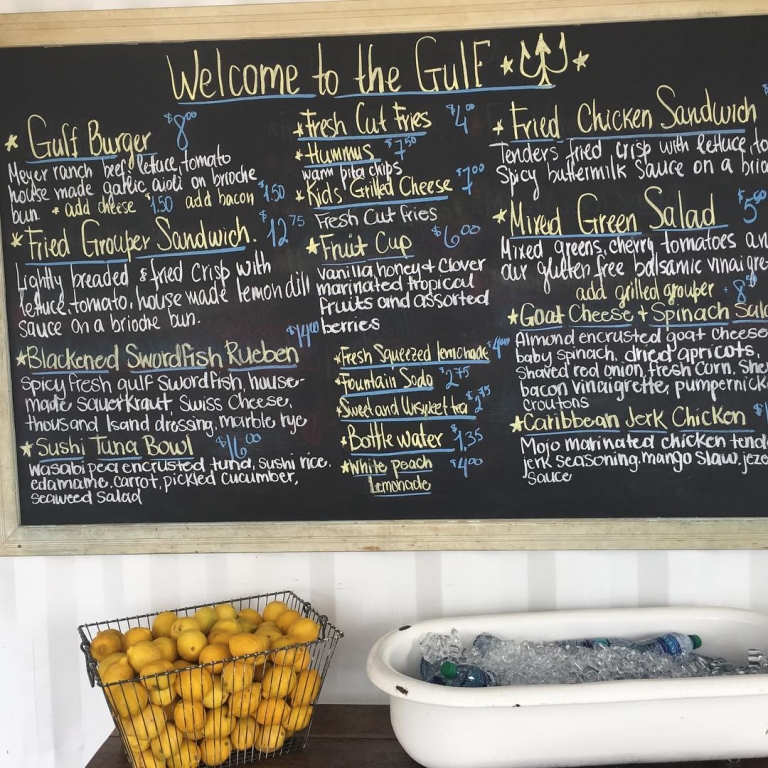 Welcome to the Gulf
Gulf Burger $8.00
Meyer ranch beef, lettuce, tomato
house made garlic aioli on brioche
bun. + add cheese $1.50 add bacon $1.50
Fried Grouper Sandwich. $12.75
Lightly breaded & fried crisp with
lettuce, tomato, house made lemon dill
sauce on a brioche bun.
Blackened Swordfish Rueben $14.00
spicy fresh gulf swordfish, house-
made sauerkraut, Swiss Cheese,
thousand Island dressing, marble rye
Sushi Tuna Bowl $16.00
wasabi pea encrusted tuna, sushi rice,
edamame, carrot, pickled cucumber,
seaweed salad
Fresh Cut Fries $4.00
Hummus $7.50
warm pita chips
Kid's Grilled Cheese $7.00
Fresh Cut fries
Fruit Cup $6.00
vanilla, honey + clover
marinated tropical
fruits and assorted
berries
Fresh Squeezed lemonade $4.00
Fountain Soda $2.75
Sweet and Unsweet tea
Bottle water $1.35
White peach $4.00
Lemonade
Fried Chicken Sandwich
Tenders fried crisp with lettuce, to
Spicy buttermilk sauce on a brio
Mixed Green Salad
Mixed greens, cherry tomatoes an
our gluten free balsamic vinaigre
add grilled grouper + 8
Goat Cheese + Spinach Sala
Almond encrusted goat cheese
baby spinach, dried apricots,
shaved red onion, fresh corn, She
bacon vinaigrette, pumpernick
croutons
Caribbean Jerk Chicken
Mojo marinated chicken tend
jerk seasoning, mango slaw, jeze
sauce